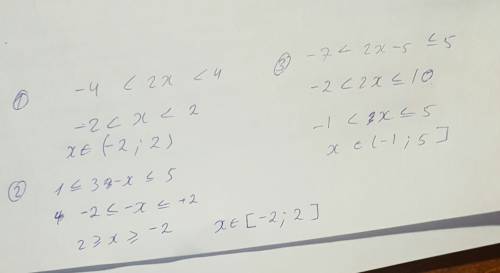 ① -4 < 2x < 4
-2 < x < 2
x ∈ (-2 ; 2)
② 1 ≤ 3-x ≤ 5
-2 ≤ -x ≤ +2
2 ≥ x ≥ -2 x ∈ [-2 ; 2]
③ -7 < 2x-5 ≤ 5
-2 < 2x ≤ 10
-1 < x ≤ 5
x ∈ (-1 ; 5]